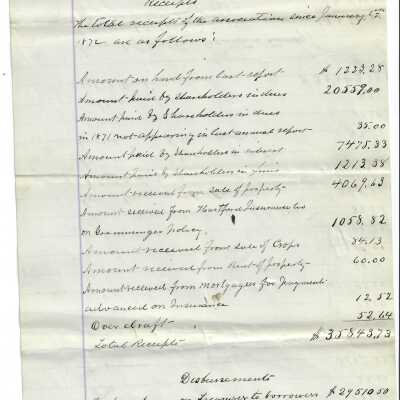 Receipts
The total receipts of the association since January 1st
1872 are as follows:
Amount on hand from last report $ 1223.28
Amount paid by shareholders in dues 20559.00
Amount paid by Shareholders in dues
in 1871 not appearing in last annual report 35.00
Amount paid by shareholders in interest 7475.33
Amount paid by shareholders in fines 1213.38
Amount received from sale of property 4069.63
Amount received from Hartford Insurance Co
on Policy. 1058.82
Amount received from sale of Crops 84.13
Amount received from Rent of property 60.00
Amount received from mortgages for payments
advanced on Insurance 12.52
Over draft 52.64
Total Receipts $ 35843.73
Disbursements
on to borrowers $ 29510.50